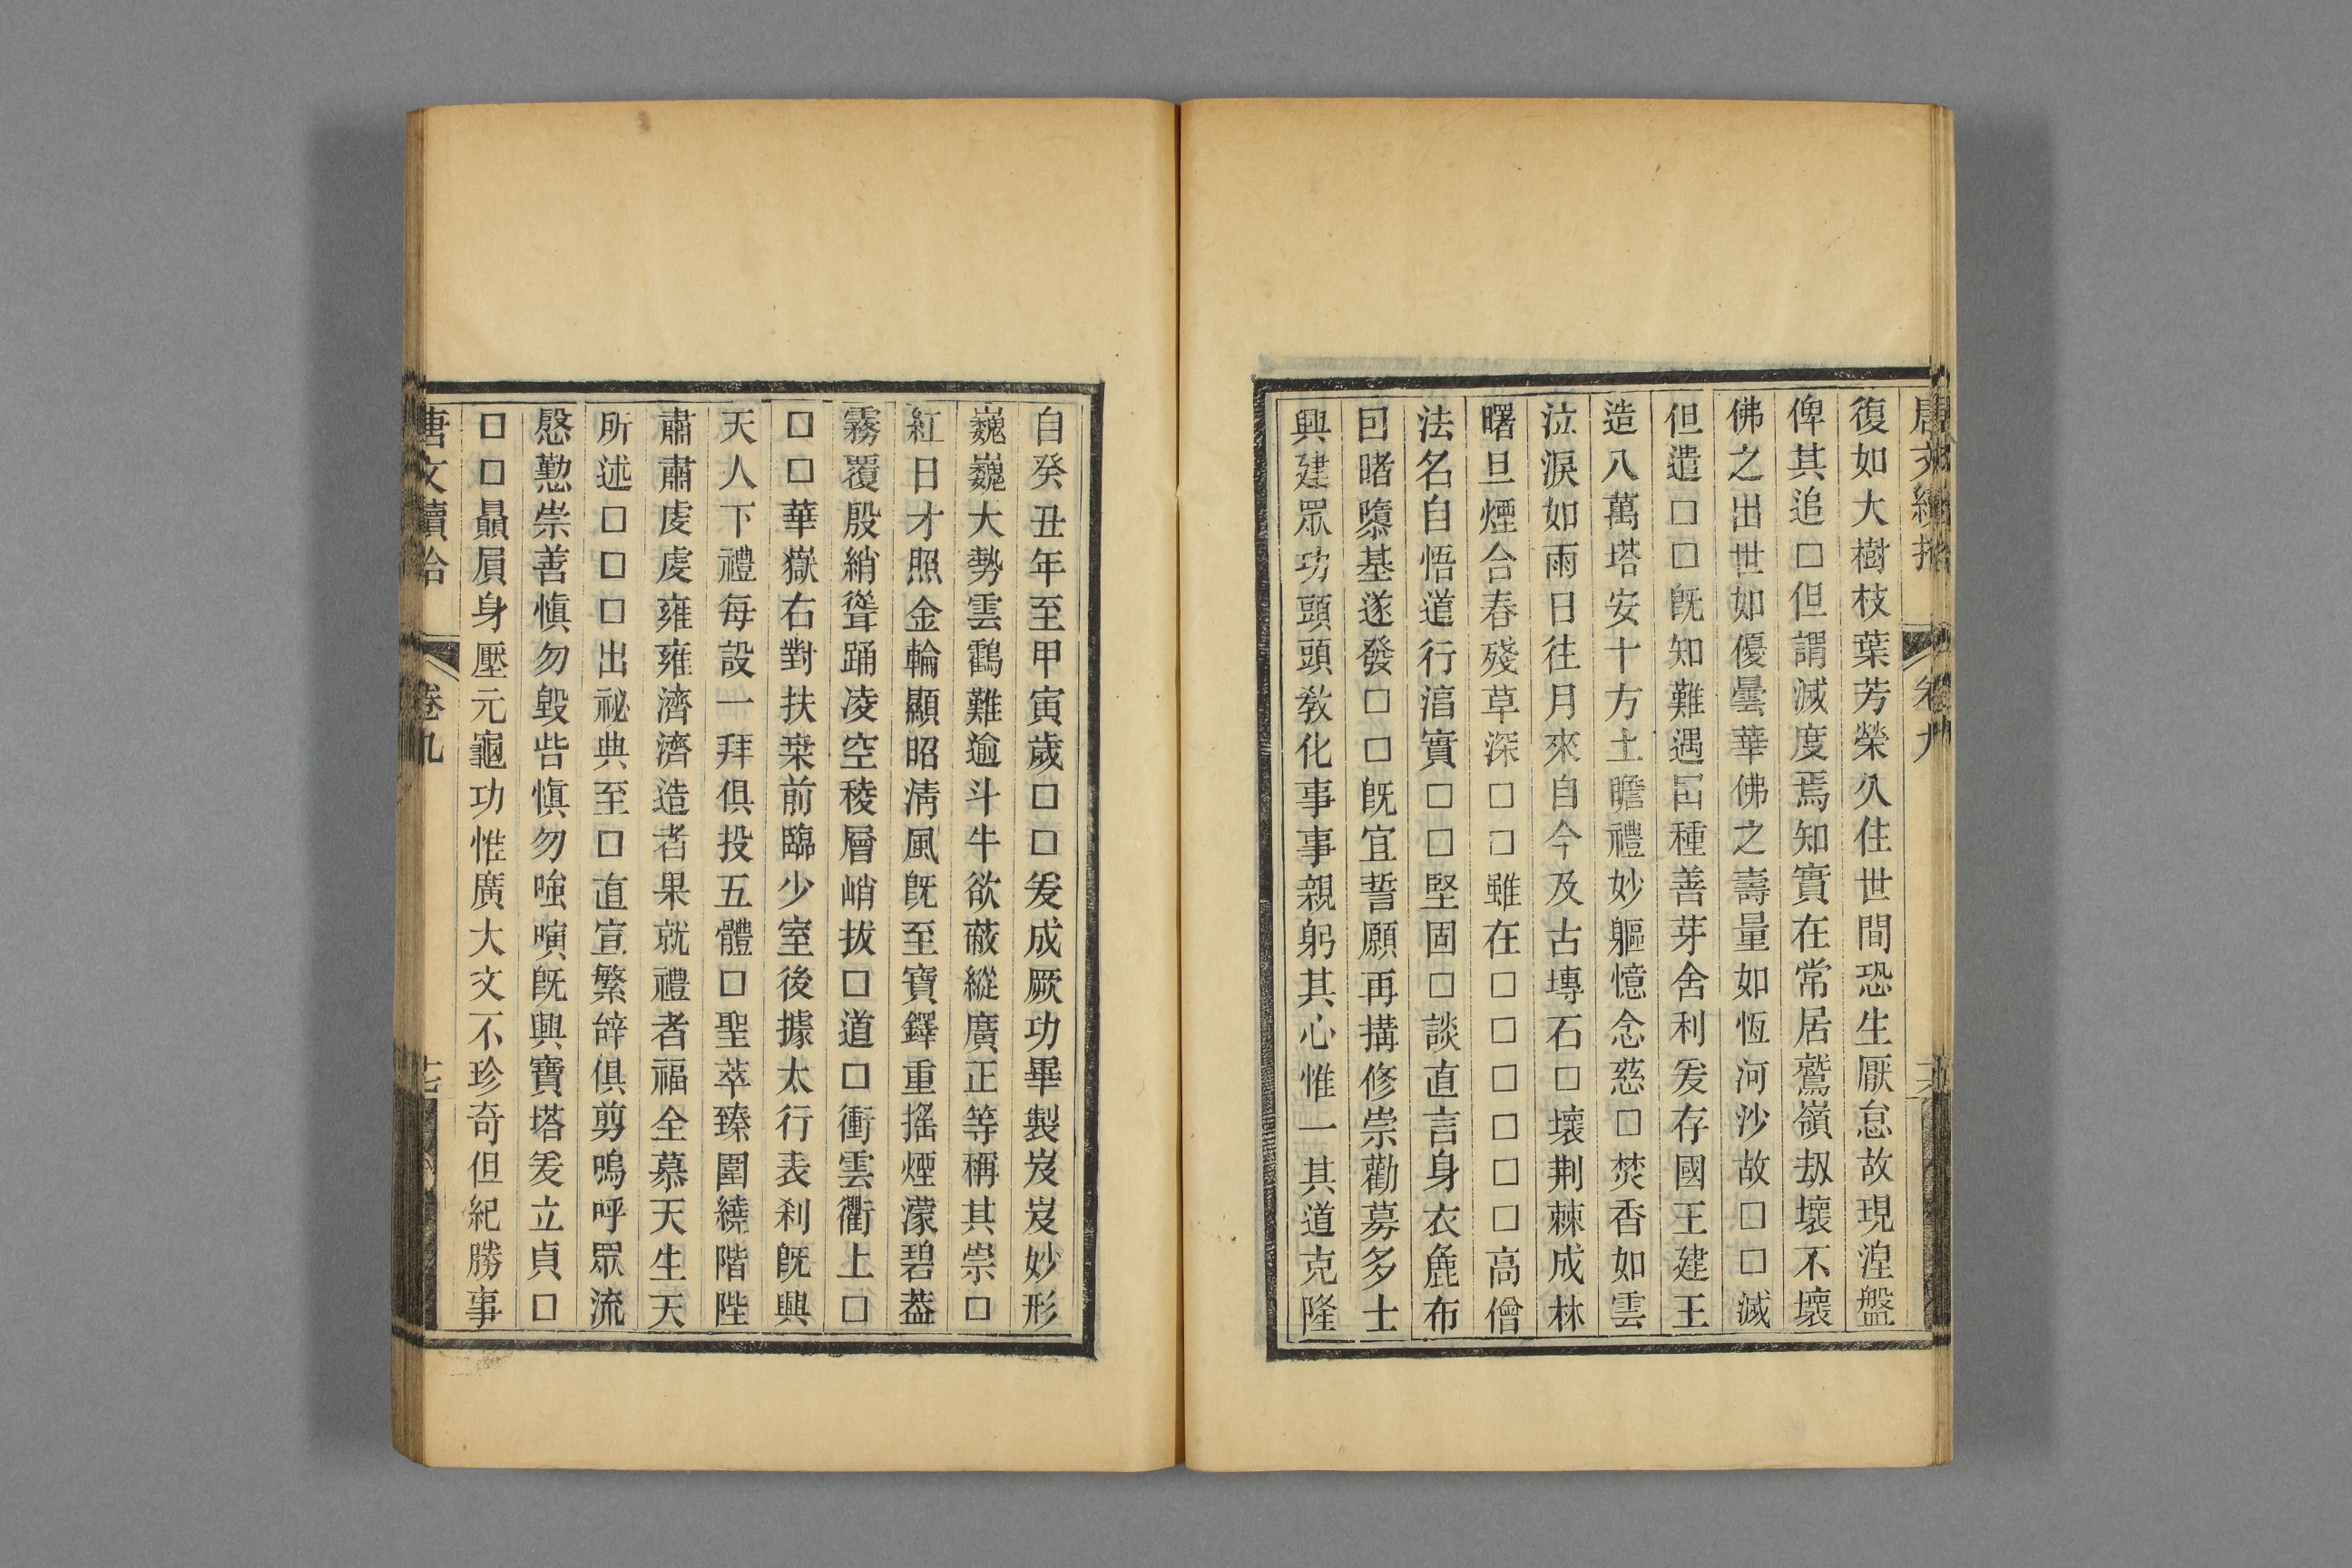 唐文續拾 卷九 六
復如大樹枝葉芳榮久住世間恐生厭怠故現湼盤
俾其追□但謂滅度焉知實在常居鷲嶺刼壞不壞
佛之出世如優曇華佛之壽量如恆河沙故□□滅
但遣□□旣知難遇因種善芽舍利爰存國王建王
造八萬塔安十方土瞻禮妙軀憶念慈□焚香如雲
泣淚如雨日往月來自今及古塼石□壞荆棘成林
曙旦煙合春殘草深□□雖在□□□□□□高僧
法名自悟道行湻實□□堅固□談直言身衣麁布
囙睹隳基遂發□□旣宜誓願再搆修崇勸募多士
興建眾功頭頭敎化事事親躬其心惟一其道克隆
自癸丑年至甲寅歲□□爰成厥功畢製岌岌妙形
巍巍大勢雲鸖難逾斗牛欲蔽縱廣正等稱其崇□
紅日才照金輪顯昭淸風旣至寶鐸重搖煙濛碧葢
霧覆殷綃聳踊凌空稜層峭拔□道□衝雲衢上□
□□華嶽右對扶桒前臨少室後據太行表刹旣興
天人下禮每設一拜俱投五體□聖萃臻圍繞階陛
肅肅虔虔雍雍濟濟造者果就禮者福全慕天生天
所述□□□出祕典至□直宣繁辝俱剪嗚呼眾流
慇懃崇善愼勿毀呰愼勿嗤嘕旣興寶塔爰立貞□
□□贔屓身壓元龜功惟廣大文不珍奇但紀勝事
唐文續拾 卷九 十七